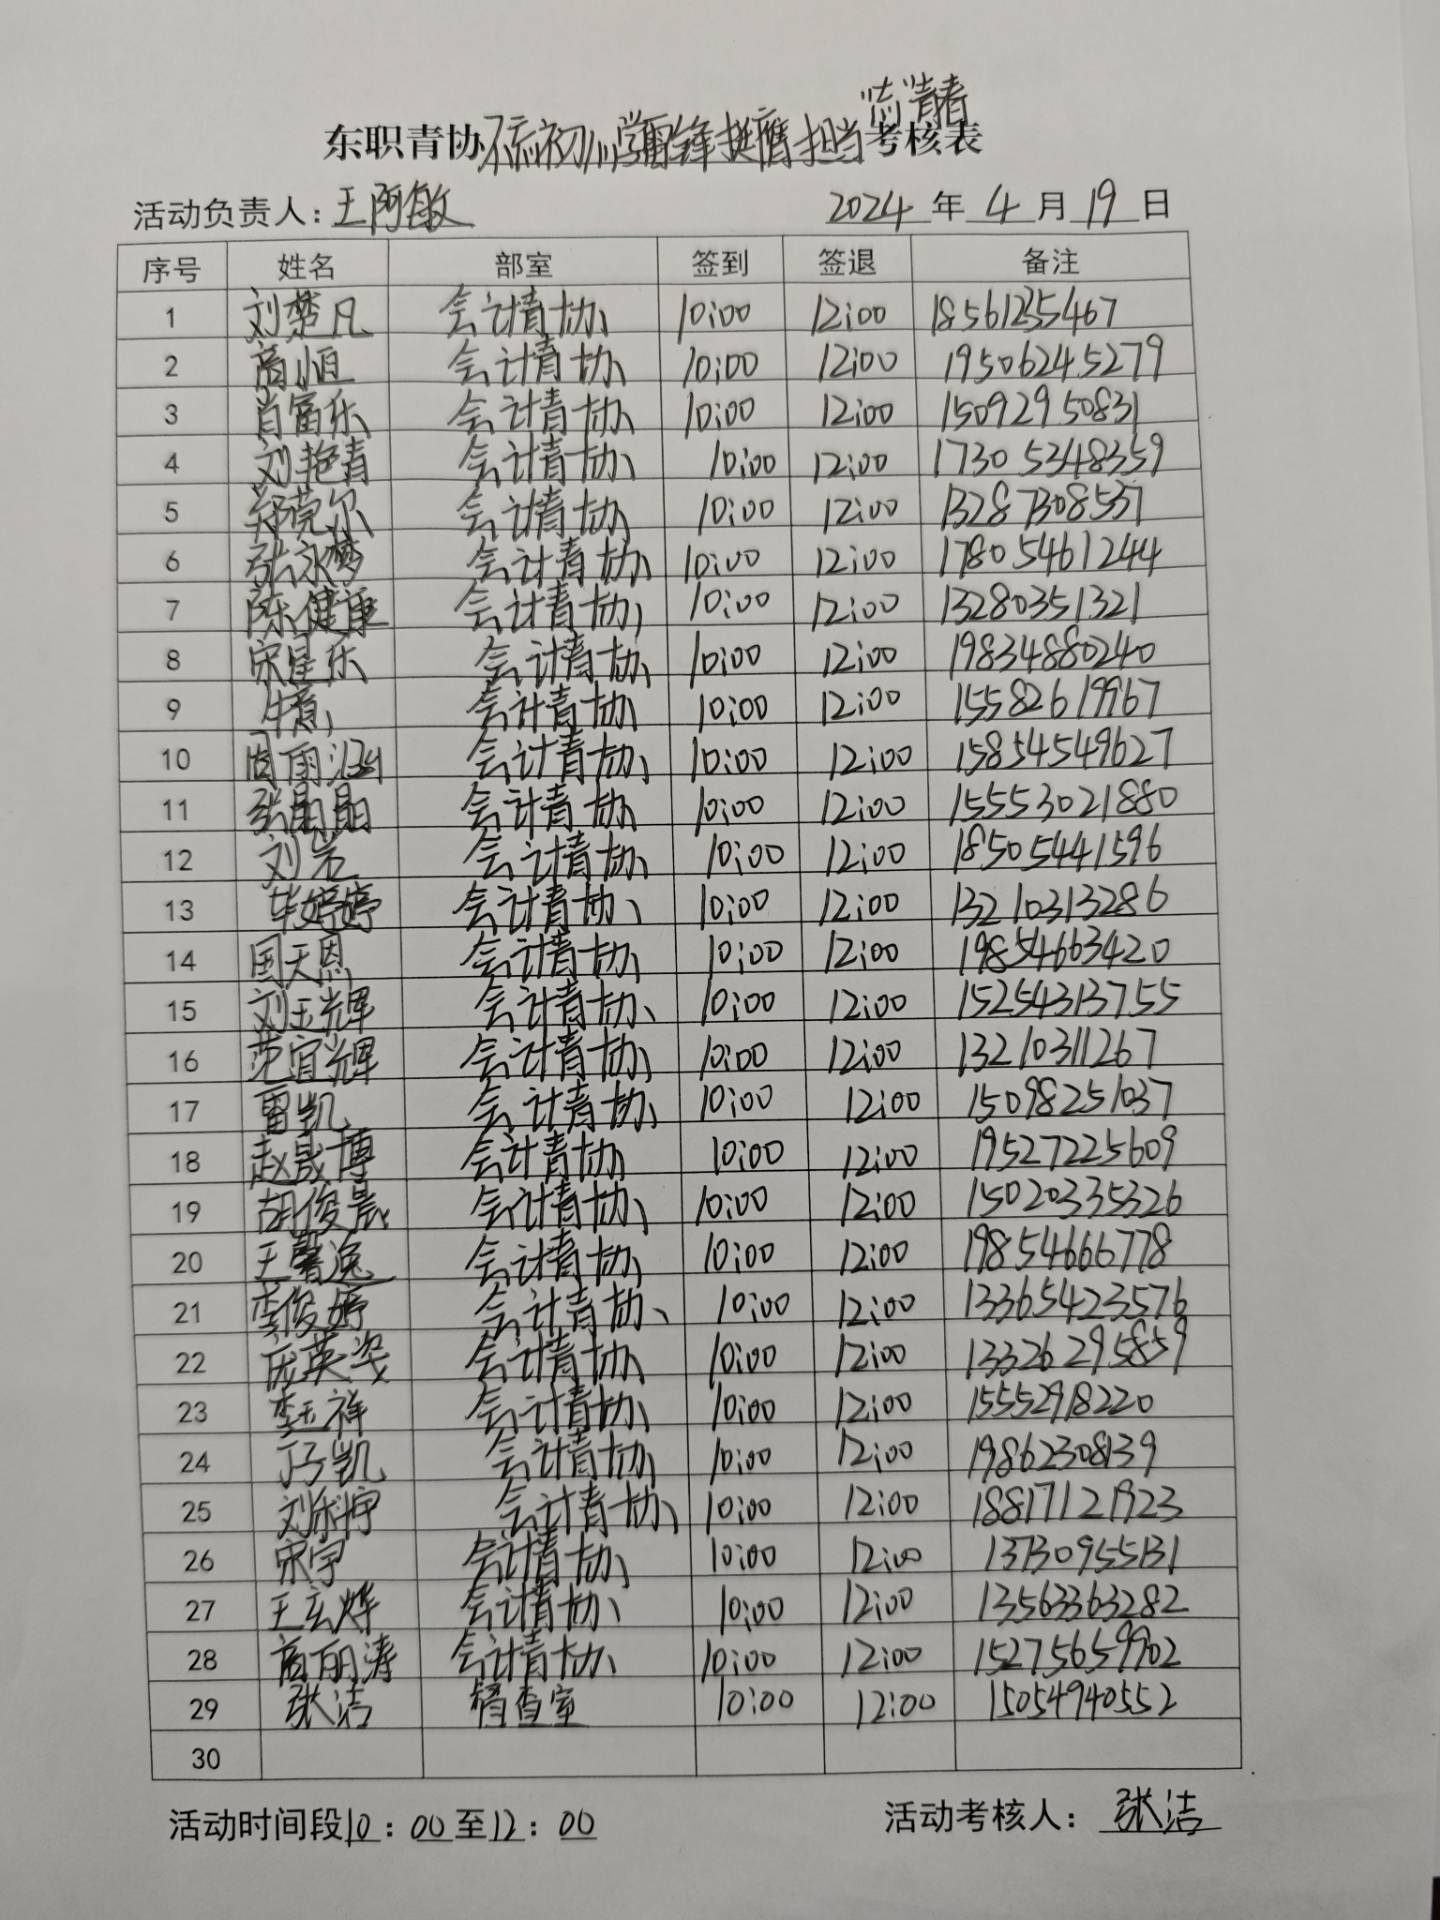 志青春
东职青协不忘初心学雷锋挺膺担当考核表
活动负责人：王阿敏 2024年4月19日
序号 姓名 部室 签到 签退 备注
1 刘楚凡 会计青协 10:00 12:00 18561235467
2 商恒 会计青协 10:00 12:00 19506245279
3 肖富乐 会计青协 10:00 12:00 15092950831
4 刘艳青 会计青协 10:00 12:00 17305348359
5 郑莞尔 会计青协 10:00 12:00 13287308537
6 张永梦 会计青协 10:00 12:00 17805461244
7 陈健康 会计青协 10:00 12:00 13280351321
8 宋星乐 会计青协 10:00 12:00 19834880240
9 会计青协 10:00 12:00 15582619967
10 周雨涵 会计青协 10:00 12:00 15854549627
11 张晶晶 会计青协 10:00 12:00 15553021880
12 刘岩 会计青协 10:00 12:00 18505441596
13 毕婷婷 会计青协 10:00 12:00 13210313286
14 国天恩 会计青协 10:00 12:00 19854663420
15 刘玉辉 会计青协 10:00 12:00 15254313755
16 范宜辉 会计青协 10:00 12:00 13210311267
17 雷凯 会计青协 10:00 12:00 15098251037
18 赵晟博 会计青协 10:00 12:00 19527225609
19 胡俊晨 会计青协 10:00 12:00 15020335326
20 王馨逸 会计青协 10:00 12:00 19854666778
21 李俊婷 会计青协 10:00 12:00 13365423576
22 庞英姿 会计青协 10:00 12:00 13326295859
23 李玉祥 会计青协 10:00 12:00 15552918220
24 会计青协 10:00 12:00 19862308139
25 刘科宇 会计青协 10:00 12:00 18817121923
26 宋宇 会计青协 10:00 12:00 13730955131
27 王玄烨 会计青协 10:00 12:00 13563363282
28 商丽涛 会计青协 10:00 12:00 15275659902
29 张洁 督查室 10:00 12:00 15054940552
30
活动时间段10：00至12：00 活动考核人：张洁